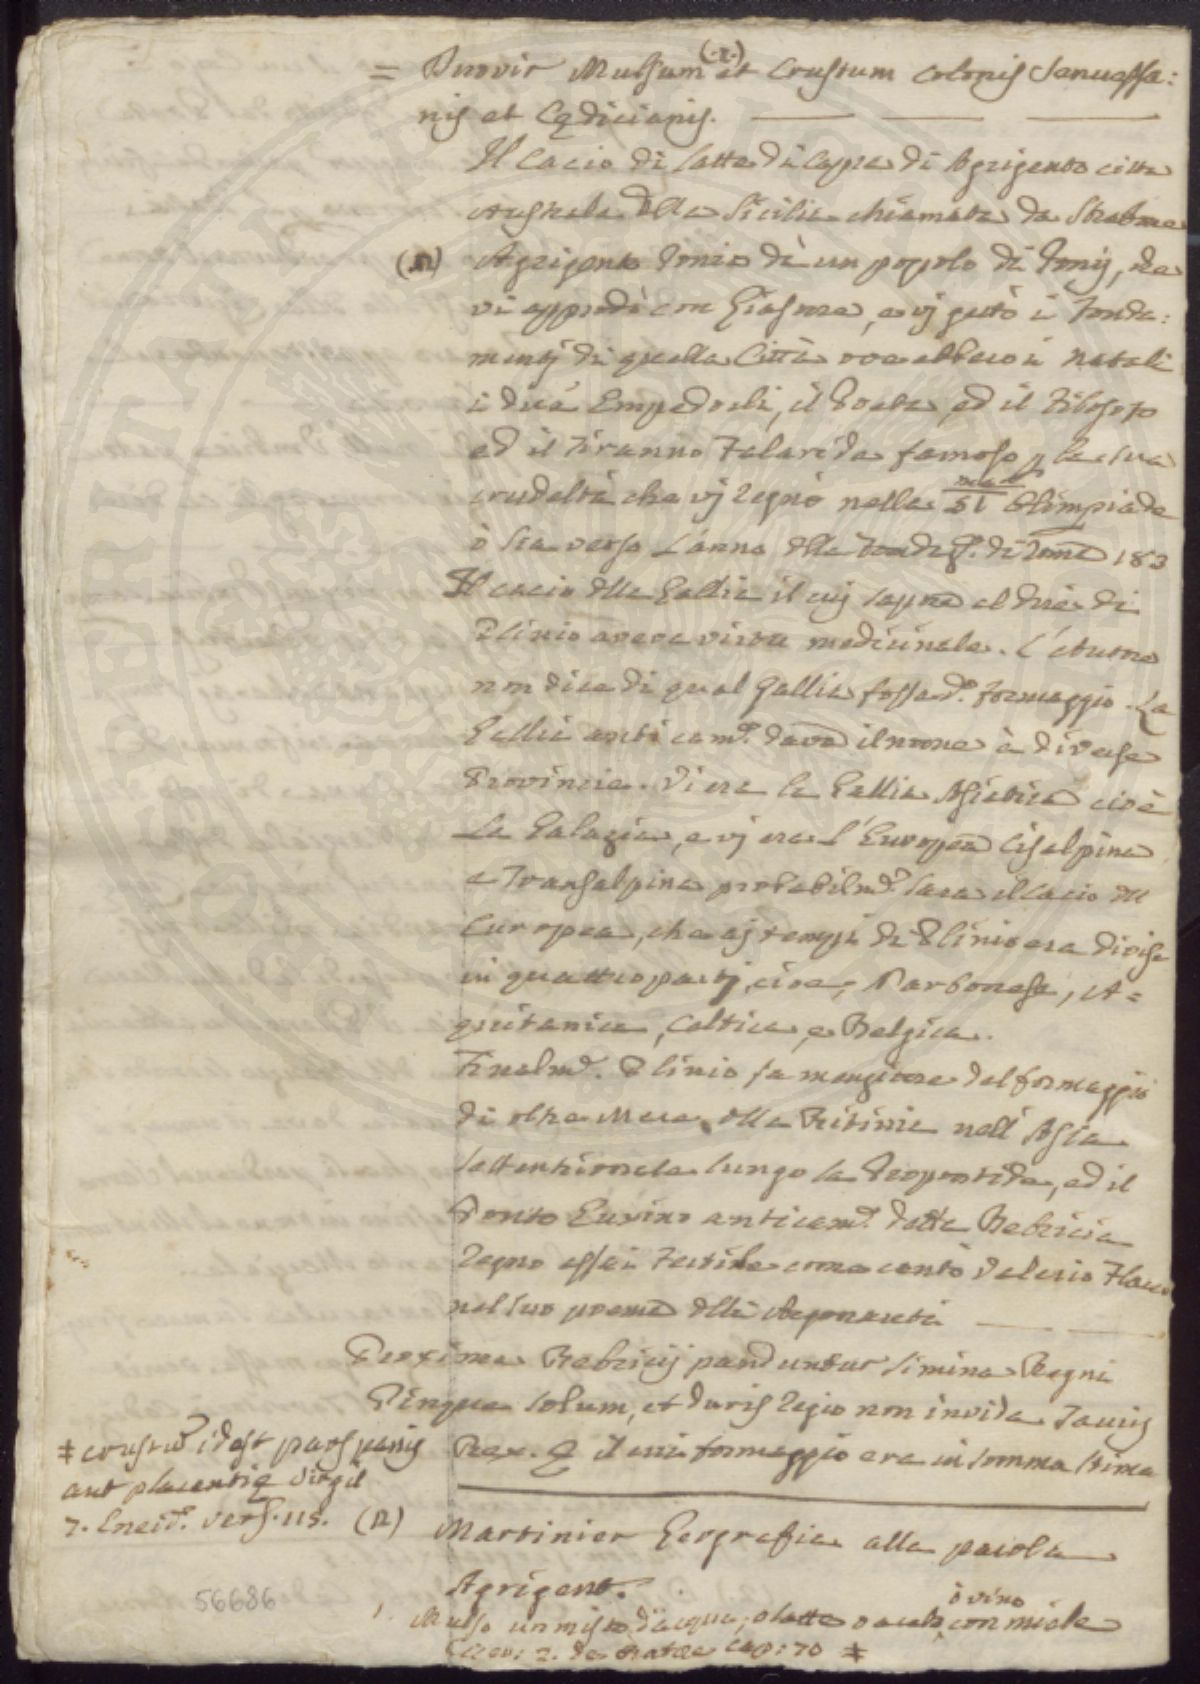 (·1·)
= Duovir Mulsum et Crustum Colonis Senuessa:
nis et Cędicianis.
Il Cacio di latte di Capra di Agrigento citta
Australe della Sicilia chiamata da Strabone
(A) Agrigento Ionio di un popolo di Ionij, che
vi approdò con, e vi gettò i fonda:
menti di quella Città ove ebbero i natali
i due Empedocli, il Poeta, ed il Filosofo
ed il Tiranno Falaride famoso p la sua
crudeltà che vi regnò nella 51 ma Olimpiade
ò sia verso l'anno della di Roma 183
Il cacio della Gallia il cui sapore al dire di
Plinio aveva virtu medicinale. L'Autore
non dice di qual Gallia fosse do. formaggio. La
Gallia anticamte. dava il nome à diverse
Provincie. Vi era la Gallia Asiatica cioè
La Galazia, e vi era l'Europea Cisalpina
e Transalpina probabilmte. sara il cacio dell
Europea, che ai tempi di Plinio era divisa
in quattro parti, cioe, Narbonese, A=
quitanica, Celtica, e Belgica.
Finalmte. Plinio fa menzione del formaggio
di oltre Mare della Bitinia nell'Asia
settentrionale lungo la Propontide, ed il
Ponto Euxino anticamte. detta Bebricia
Regno assai fertile come cantò Valerio Flacco
nel suo poema delli Argonauti
Proxima Bebricij panduntur limina Regni
Pingue solum, et duris regio non invida Tauris
Rex. & il cui formaggio era in somma stima
‡ crustu idest pars panis
aut placentię Virgil
7. Eneid. vers. 115.
(A) Martinier Geografia alla parola
Agrigent.
1. Mulso un misto d'acqua, o latte o aceto ò vino con miele
2. de cap: 70 ‡
56686